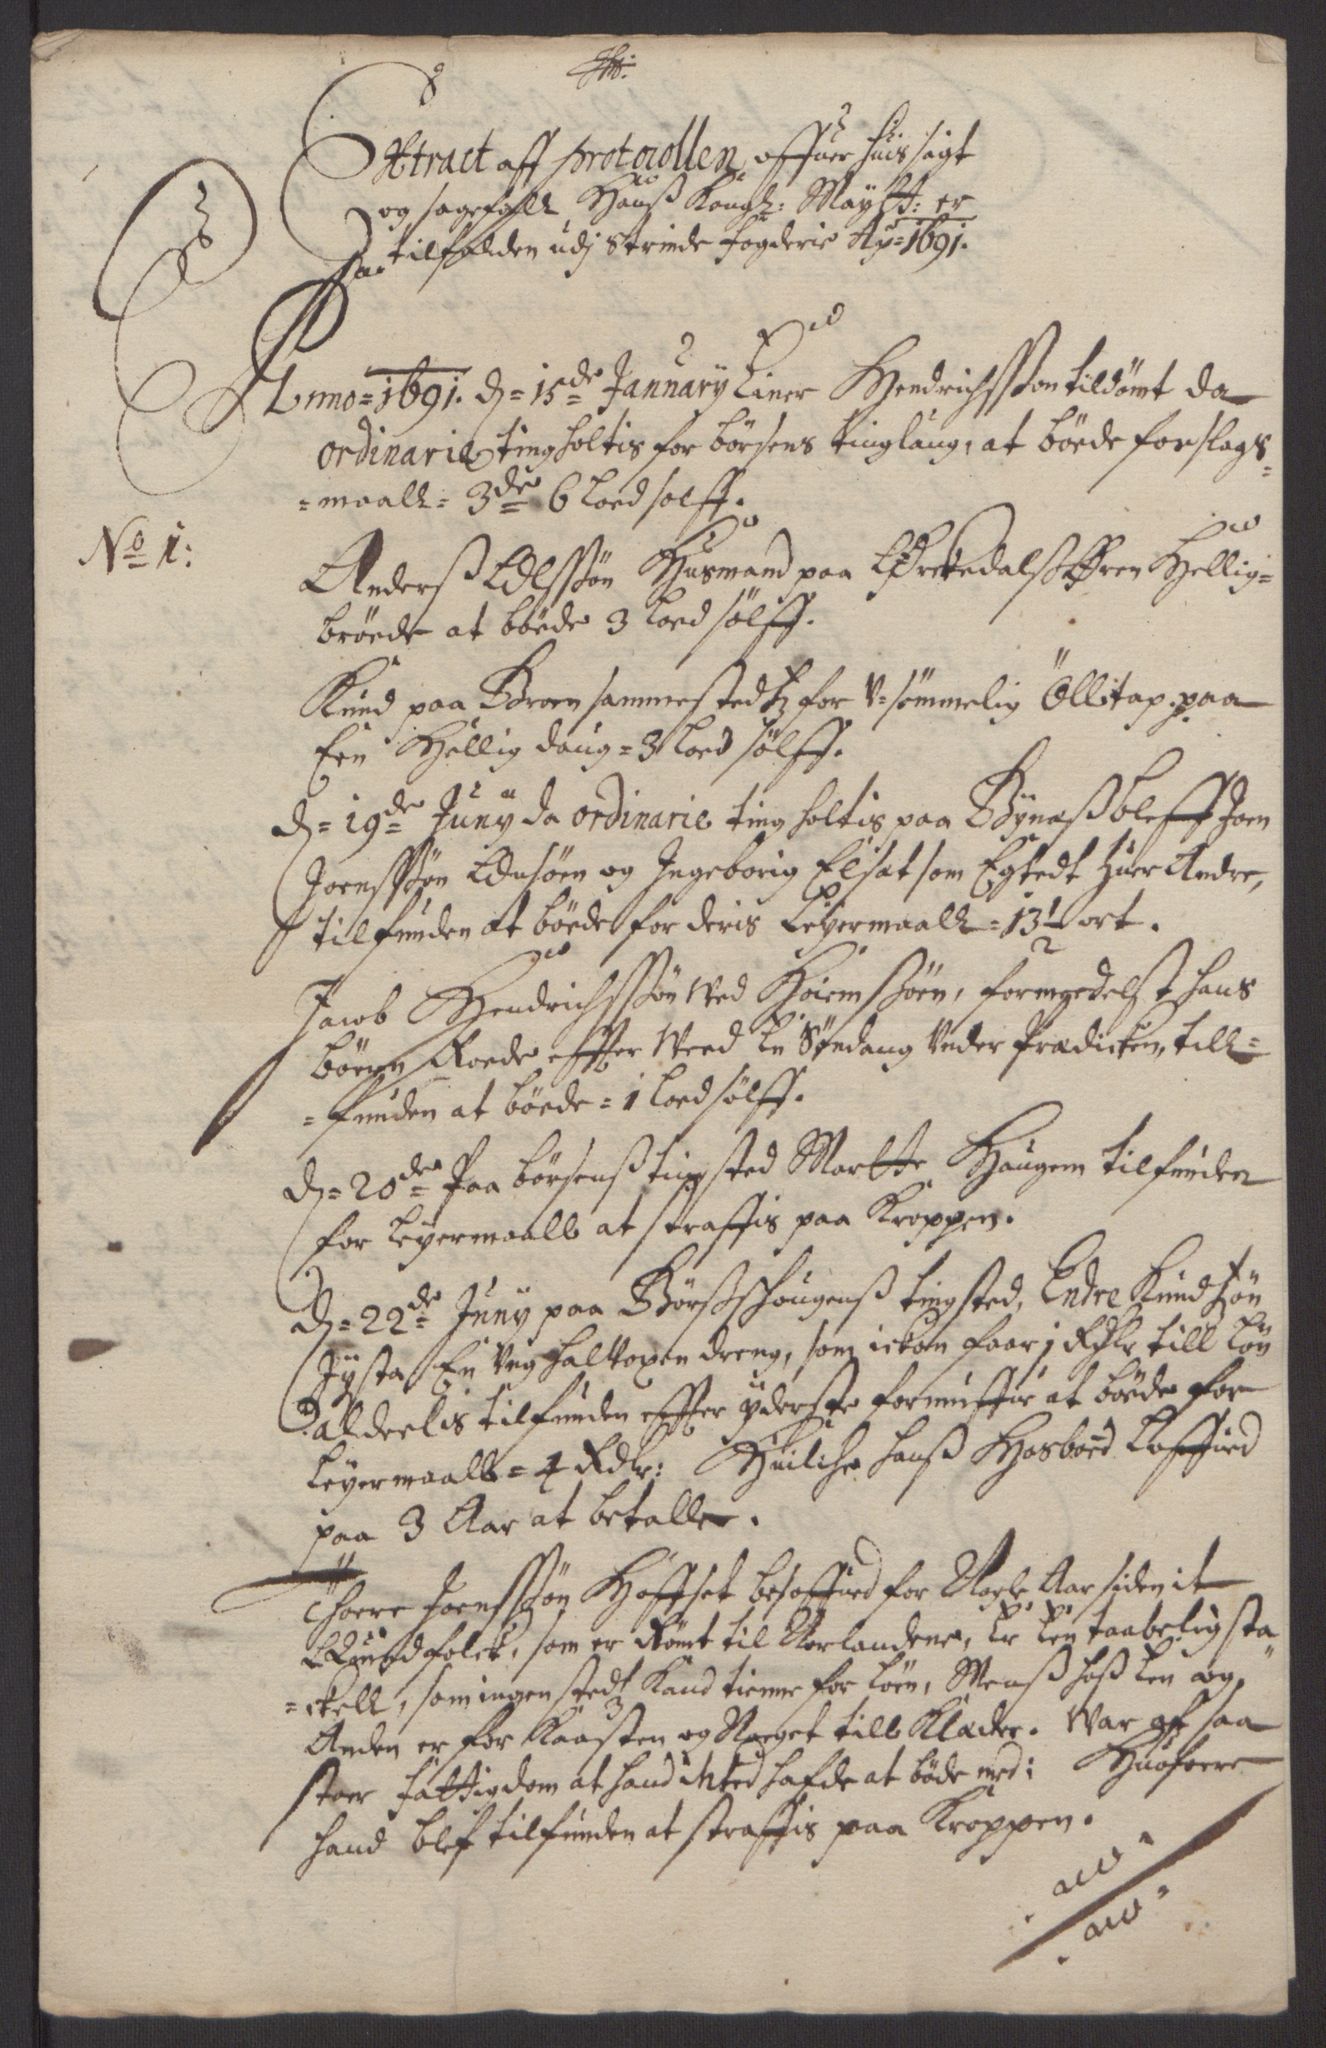 Extract aff protocollen offuer huis sigt
og sagefald Hans Kongl: Maytt: er
tilfalden udj Strinde fogderie Ao=1691.
Anno=1691. d=15de January Einer Hendrichssøn tildømt da
ordinarie ting holtis for børsens tinglaug, at bøede for slags=
=maall= 3de 6 loed sølff.
No 1:
Anders Olssøn Husmand paa Orckedalsøren Hellig=
brøede at bøede 3 loed sølff.
Knud paa Broen sammestedtz for V=sømmelig Öllitap paa
Een Hellig daug=3 loed sølff.
d=19de Juny da ordinarie ting holtis paa Bynæs bleff Joen
Joenssøn Onsøen og Ingeborig Elsæt som Egtedt huer Andre,
tilfunden at bøede for deris Leyermaall=13½ ort.
Jacob Hendrichssøn Ved Høiemsøen, formedelst hans
børen Roede effter Veed En Søndaug Under Prædicken, till=
=funden at bøede=1 loed sølff.
d=20de Paa børsens tingsted Marette Haugen tilfunden
for Leyermaall at straffis paa Kroppen.
d=22de Juny paa Børsschougens tingsted, Endre Knudtzøn
Jysta En Ung halvoxen dreng, som ickon faar 1 Rdlr till Løn
alderlis tilfunden effter yderste formuffue at bøede for
Leyermaall=4 Rdlr: Huilche hans Hosbond Loffued
paa 3 Aar at betalle.
Thoere Joenssøn Høffset besoffued for Nogle Aar siden it
Quindfolck, som er Rømt til Norlandene, Er Een taabelig sta
=ckell, som ingenstedt kand tienne for Løn, Mens hos Een og
Anden er for Kaasten og Noeget till Klæder. War af saa
stoer fattigdom at hand inted hafde at bøde med: Huorfoere
hand blef tilfunden at straffis paa Kroppen.